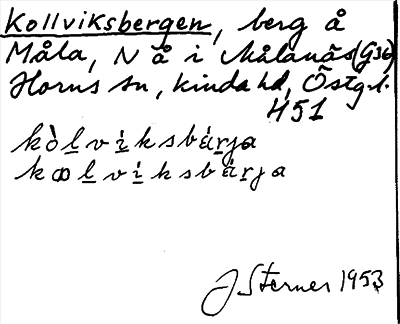 Kollviksbergen, berg å
Måla, N å i Målanäs (G36)
Horns sn, Kinda hd, Östg.l.
H51
kòl̲vi̲ksbár̲ja
kɷl̲vi̲ksbár̲ja
J Sterner 1953